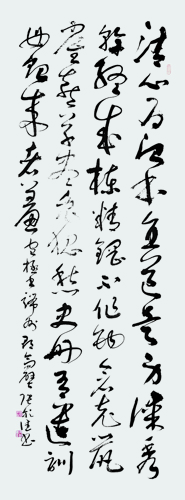 清心為治本直道是身謀秀
幹終成棟精鋼不作鉤倉充鼠
雀喜草盡兔狐愁史冊有遺訓
毋貽來者羞 包拯書端州郡齋壁